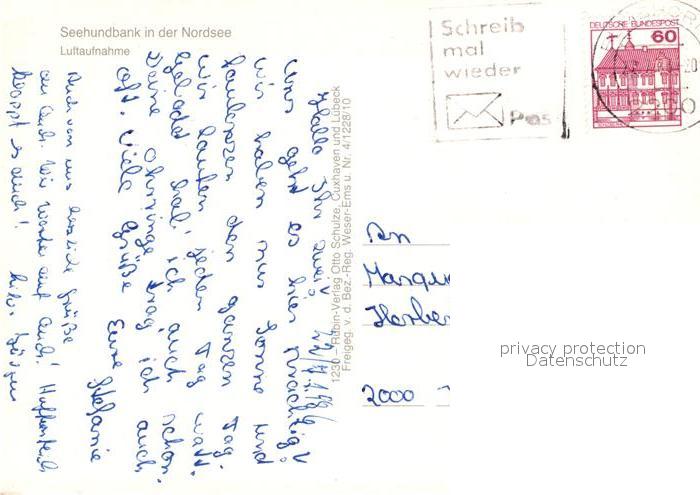 Seehundbank in der Nordsee
Luftaufnahme
Schreib
mal
wieder
Post
DEUTSCHE BUNDESPOST
60
1230 – Rubin-Verlag Otto Schulze, Cuxhaven und Lübeck
Freigeg. v. d. Bez.-Reg. Weser-Ems u. Nr. 4/1228/10
Hallo Ihr zwei!
Uns geht es hier prächtig!
Wir haben nur Sonne und
faulenzen den ganzen Tag.
Wir laufen jeden Tag Watt.
Gebadet hab' ich auch schon.
Deine Ohrringe trag ich auch
oft. Viele Grüße Eure Stefanie
Auch von uns herzliche Grüße
an Euch. Wir warten auf Euch! Hoffentlich
klappt es auch!
An
2000
privacy protection
Datenschutz